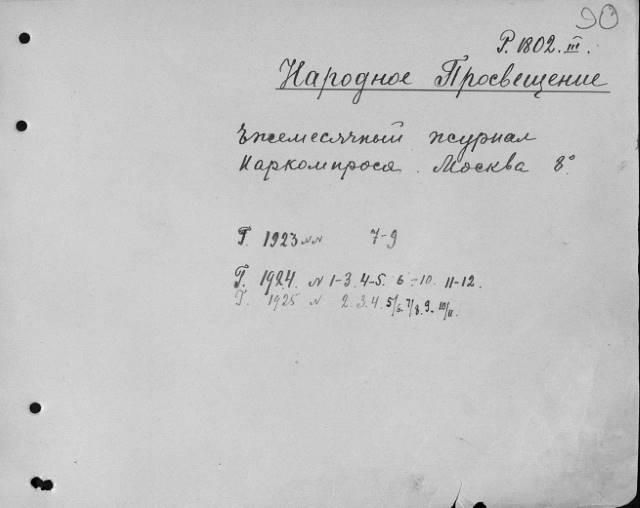 90
P. 1802. III.
Народное Просвещение
Ежемесячный журнал
Наркомпроса. Москва 8°
Г. 1923 NN 7-9
Г. 1924. N 1-3. 4-5. 6-10. 11-12.
Г. 1925 N 2. 3. 4. 5/6. 7/8. 9. 10/11.